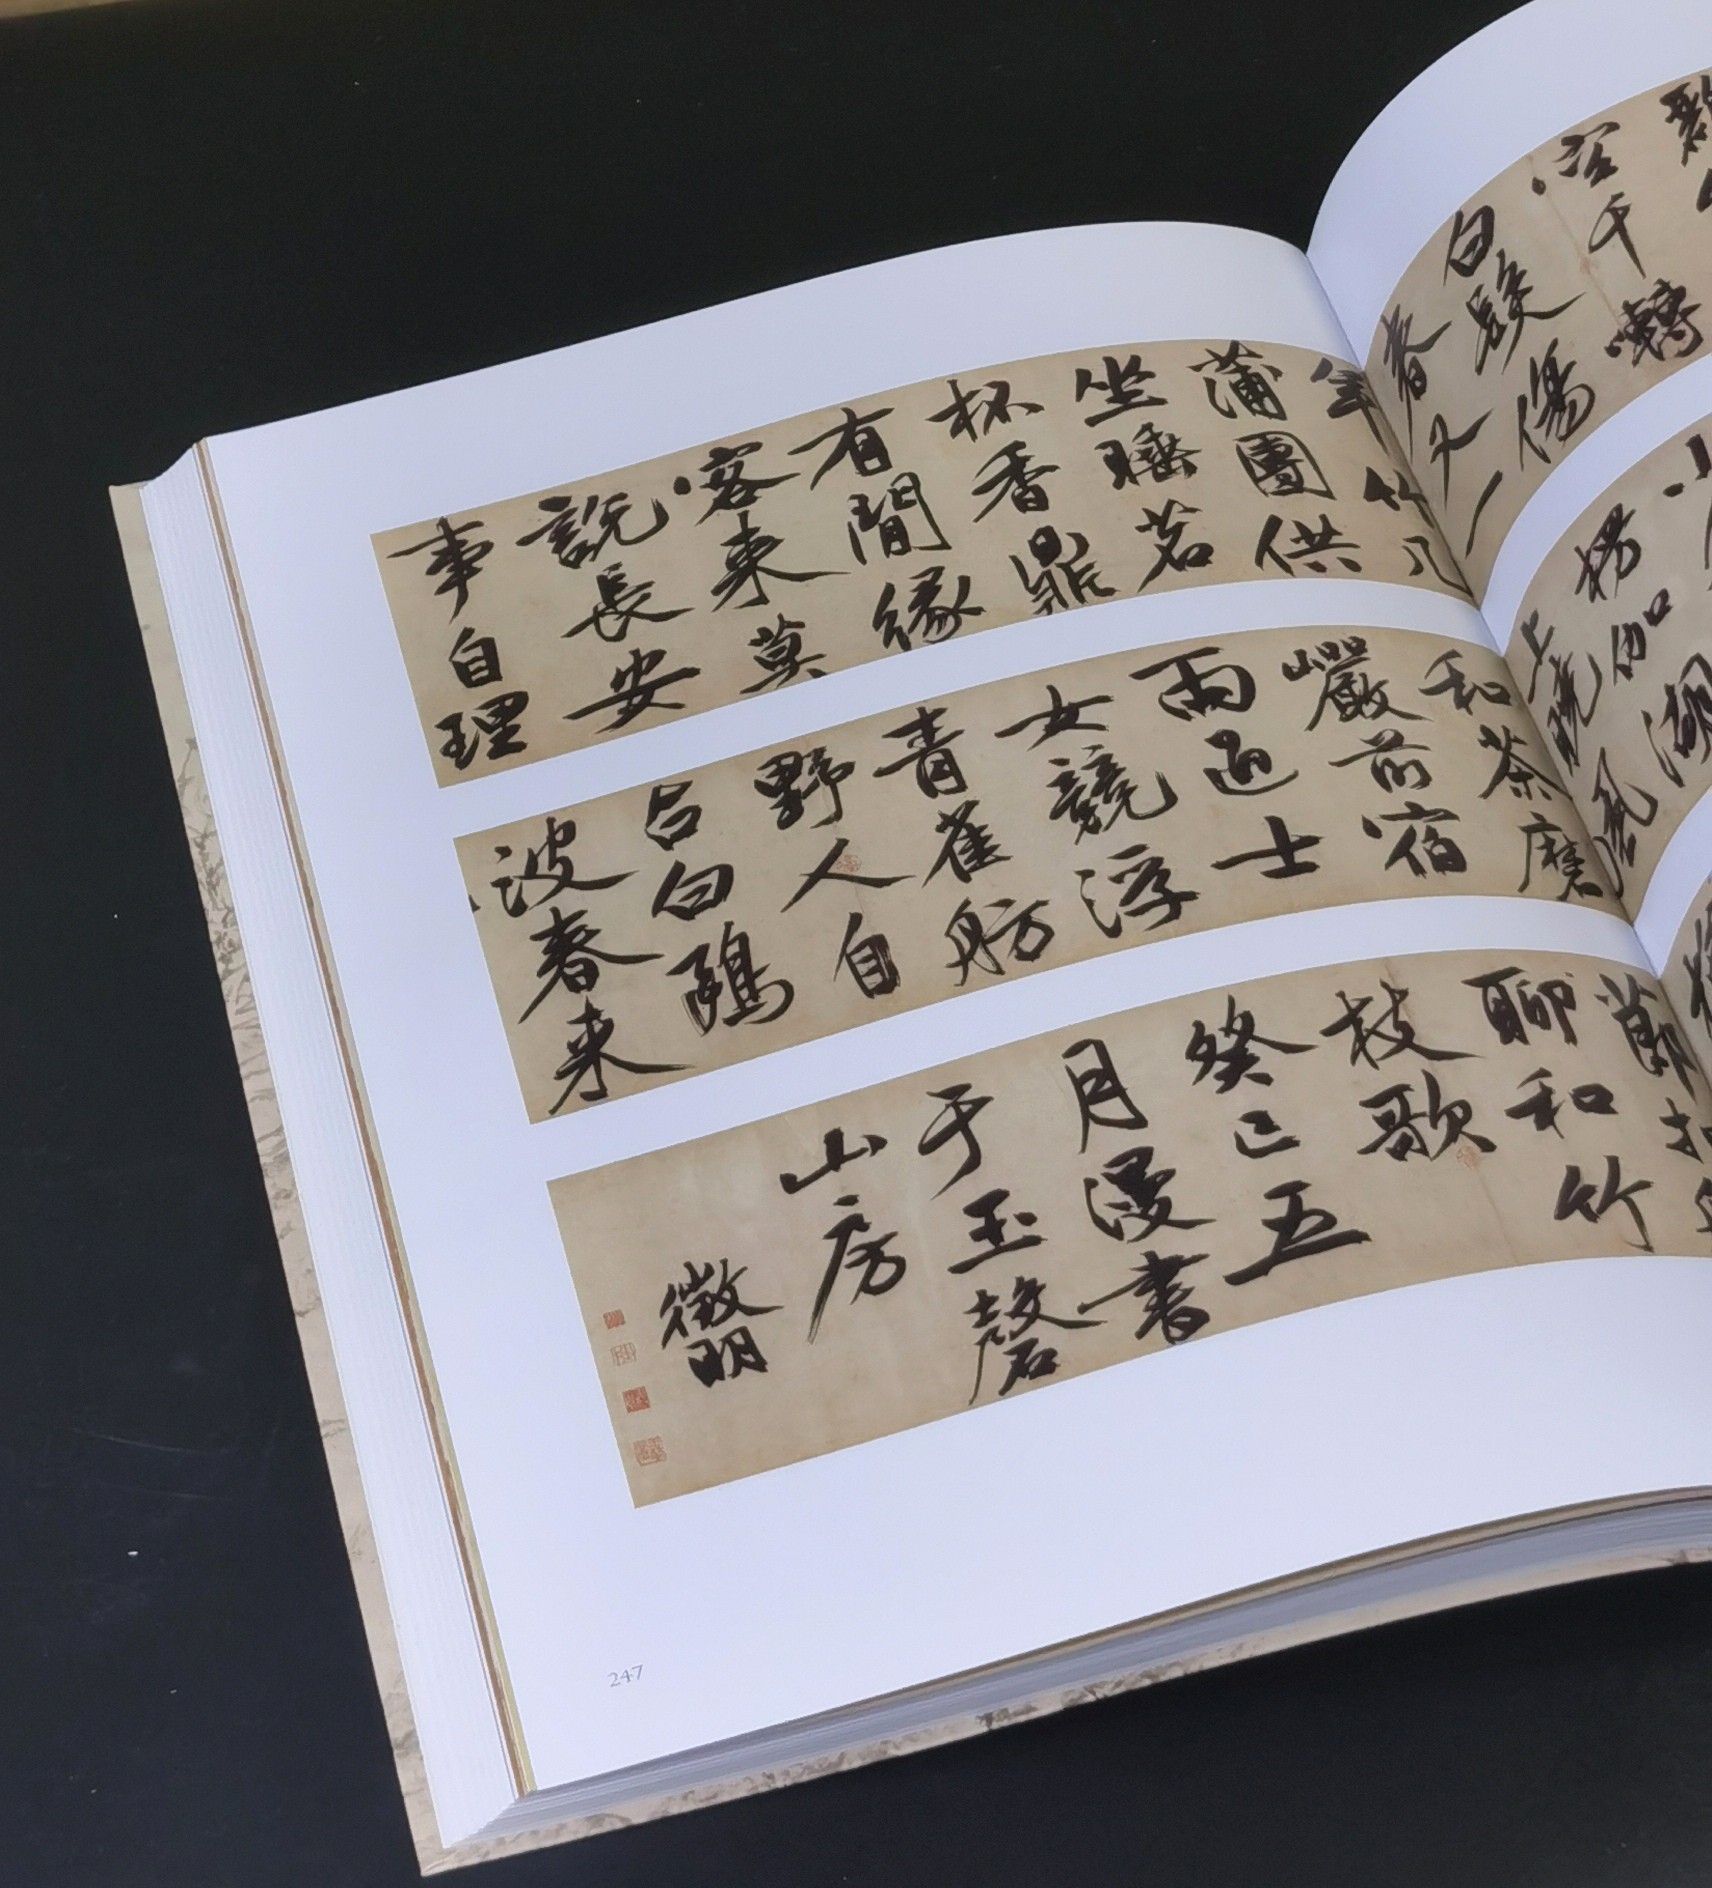 千轉
白髮傷
春又一
年竹几
蒲團供
坐睡茗
杯香鼎
有閒緣
客來莫
說長安
事自理
楞伽湖
上曉風
和茶磨
巖前宿
雨過士
女競浮
青雀舫
野人自
占白鷗
波春來
節扣
聊和竹
枝歌
癸巳五
月漫書
于玉磬
山房
徵明
247